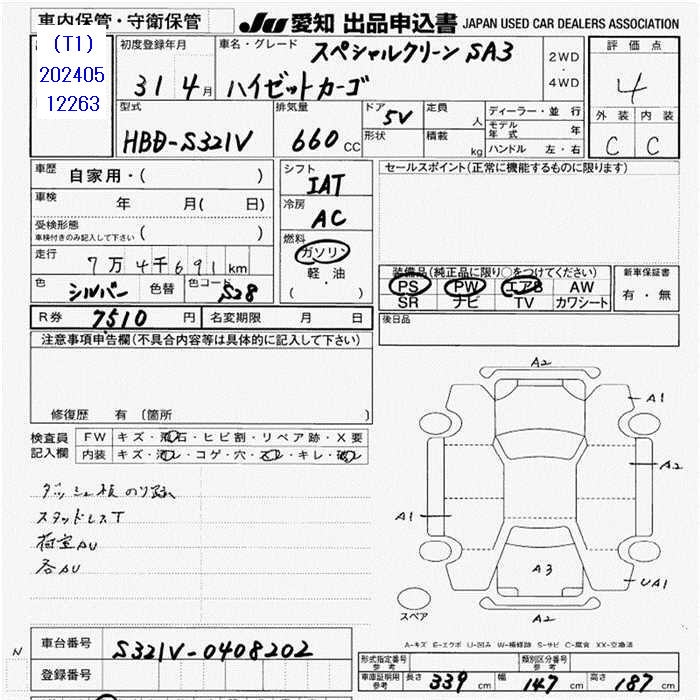 車内保管・守衛保管
JU 愛知 出品申込書 JAPAN USED CAR DEALERS ASSOCIATION
(T1)
202405
12263
初度登録年月
31 4 月
車名・グレード
スペシャルクリーン SA3
ハイゼットカーゴ
2WD
・
4WD
評価点
4
外装 内装
C C
型式
HBD-S321V
排気量
660 CC
ドア 5V
形状
定員 人
積載 kg
ディーラー・並行
モデル年式 年
ハンドル 左・右
車歴 自家用・( )
車検 年 月( 日)
受検形態
車検付きのみ記入して下さい ( )
走行 7万4千691km
色 シルバー 色替 色コード S28
シフト IAT
冷房 AC
燃料 ガソリン
軽・油
( )
セールスポイント(正常に機能するものに限ります)
装備品(純正品に限り○をつけてください)
PS PW エアB AW
SR ナビ TV カワシート
新車保証書
有・無
R券 7510 円 名変期限 月 日
後日品
注意事項申告欄(不具合内容等は具体的に記入して下さい)
修復歴 有 (箇所 )
検査員記入欄
FW キズ・飛石・ヒビ割・リペア跡・X要
内装 キズ・汚レ・コゲ・穴・スレ・キレ・破レ
ダッシュ板のり跡
スタッドレスT
荷室AU
各AU
A2
A1
A2
A1
A3
UA1
A2
スペア
A-キズ E-エクボ U-凹み W-補修跡 S-サビ C-腐食 XX-交換済
N
車台番号 S321V-0408202
登録番号
形式指定番号 参考
類別区分番号 参考
車庫証明用 参考 長さ 339 cm 幅 147 cm 高さ 187 cm